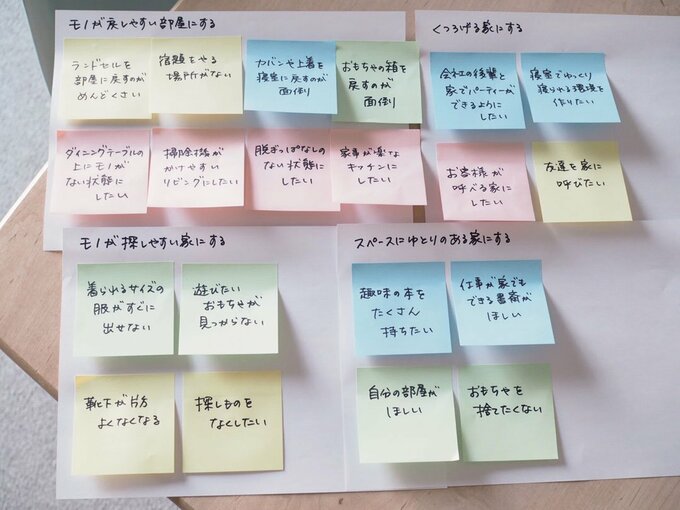 モノが戻しやすい部屋にする
ランドセルを
部屋に戻すのが
めんどくさい
宿題をやる
場所がない
カバンや上着を
寝室に戻すのが
面倒
おもちゃの箱を
戻すのが
面倒
ダイニングテーブルの
上にモノが
ない状態に
したい
掃除機が
かけやすい
リビングにしたい
脱ぎっぱなしの
ない状態に
したい
家事が楽な
キッチンに
したい
くつろげる家にする
会社の後輩と
家でパーティーが
できるように
したい
寝室でゆっくり
寝られる環境を
作りたい
お客様が
呼べる家に
したい
友達を家に
呼びたい
モノが探しやすい家にする
着られるサイズの
服がすぐに
出せない
遊びたい
おもちゃが
見つからない
靴下が片方
よくなくなる
探しものを
なくしたい
スペースにゆとりのある家にする
趣味の本を
たくさん
持ちたい
仕事が家でも
できる書斎が
ほしい
自分の部屋が
ほしい
おもちゃを
捨てたくない